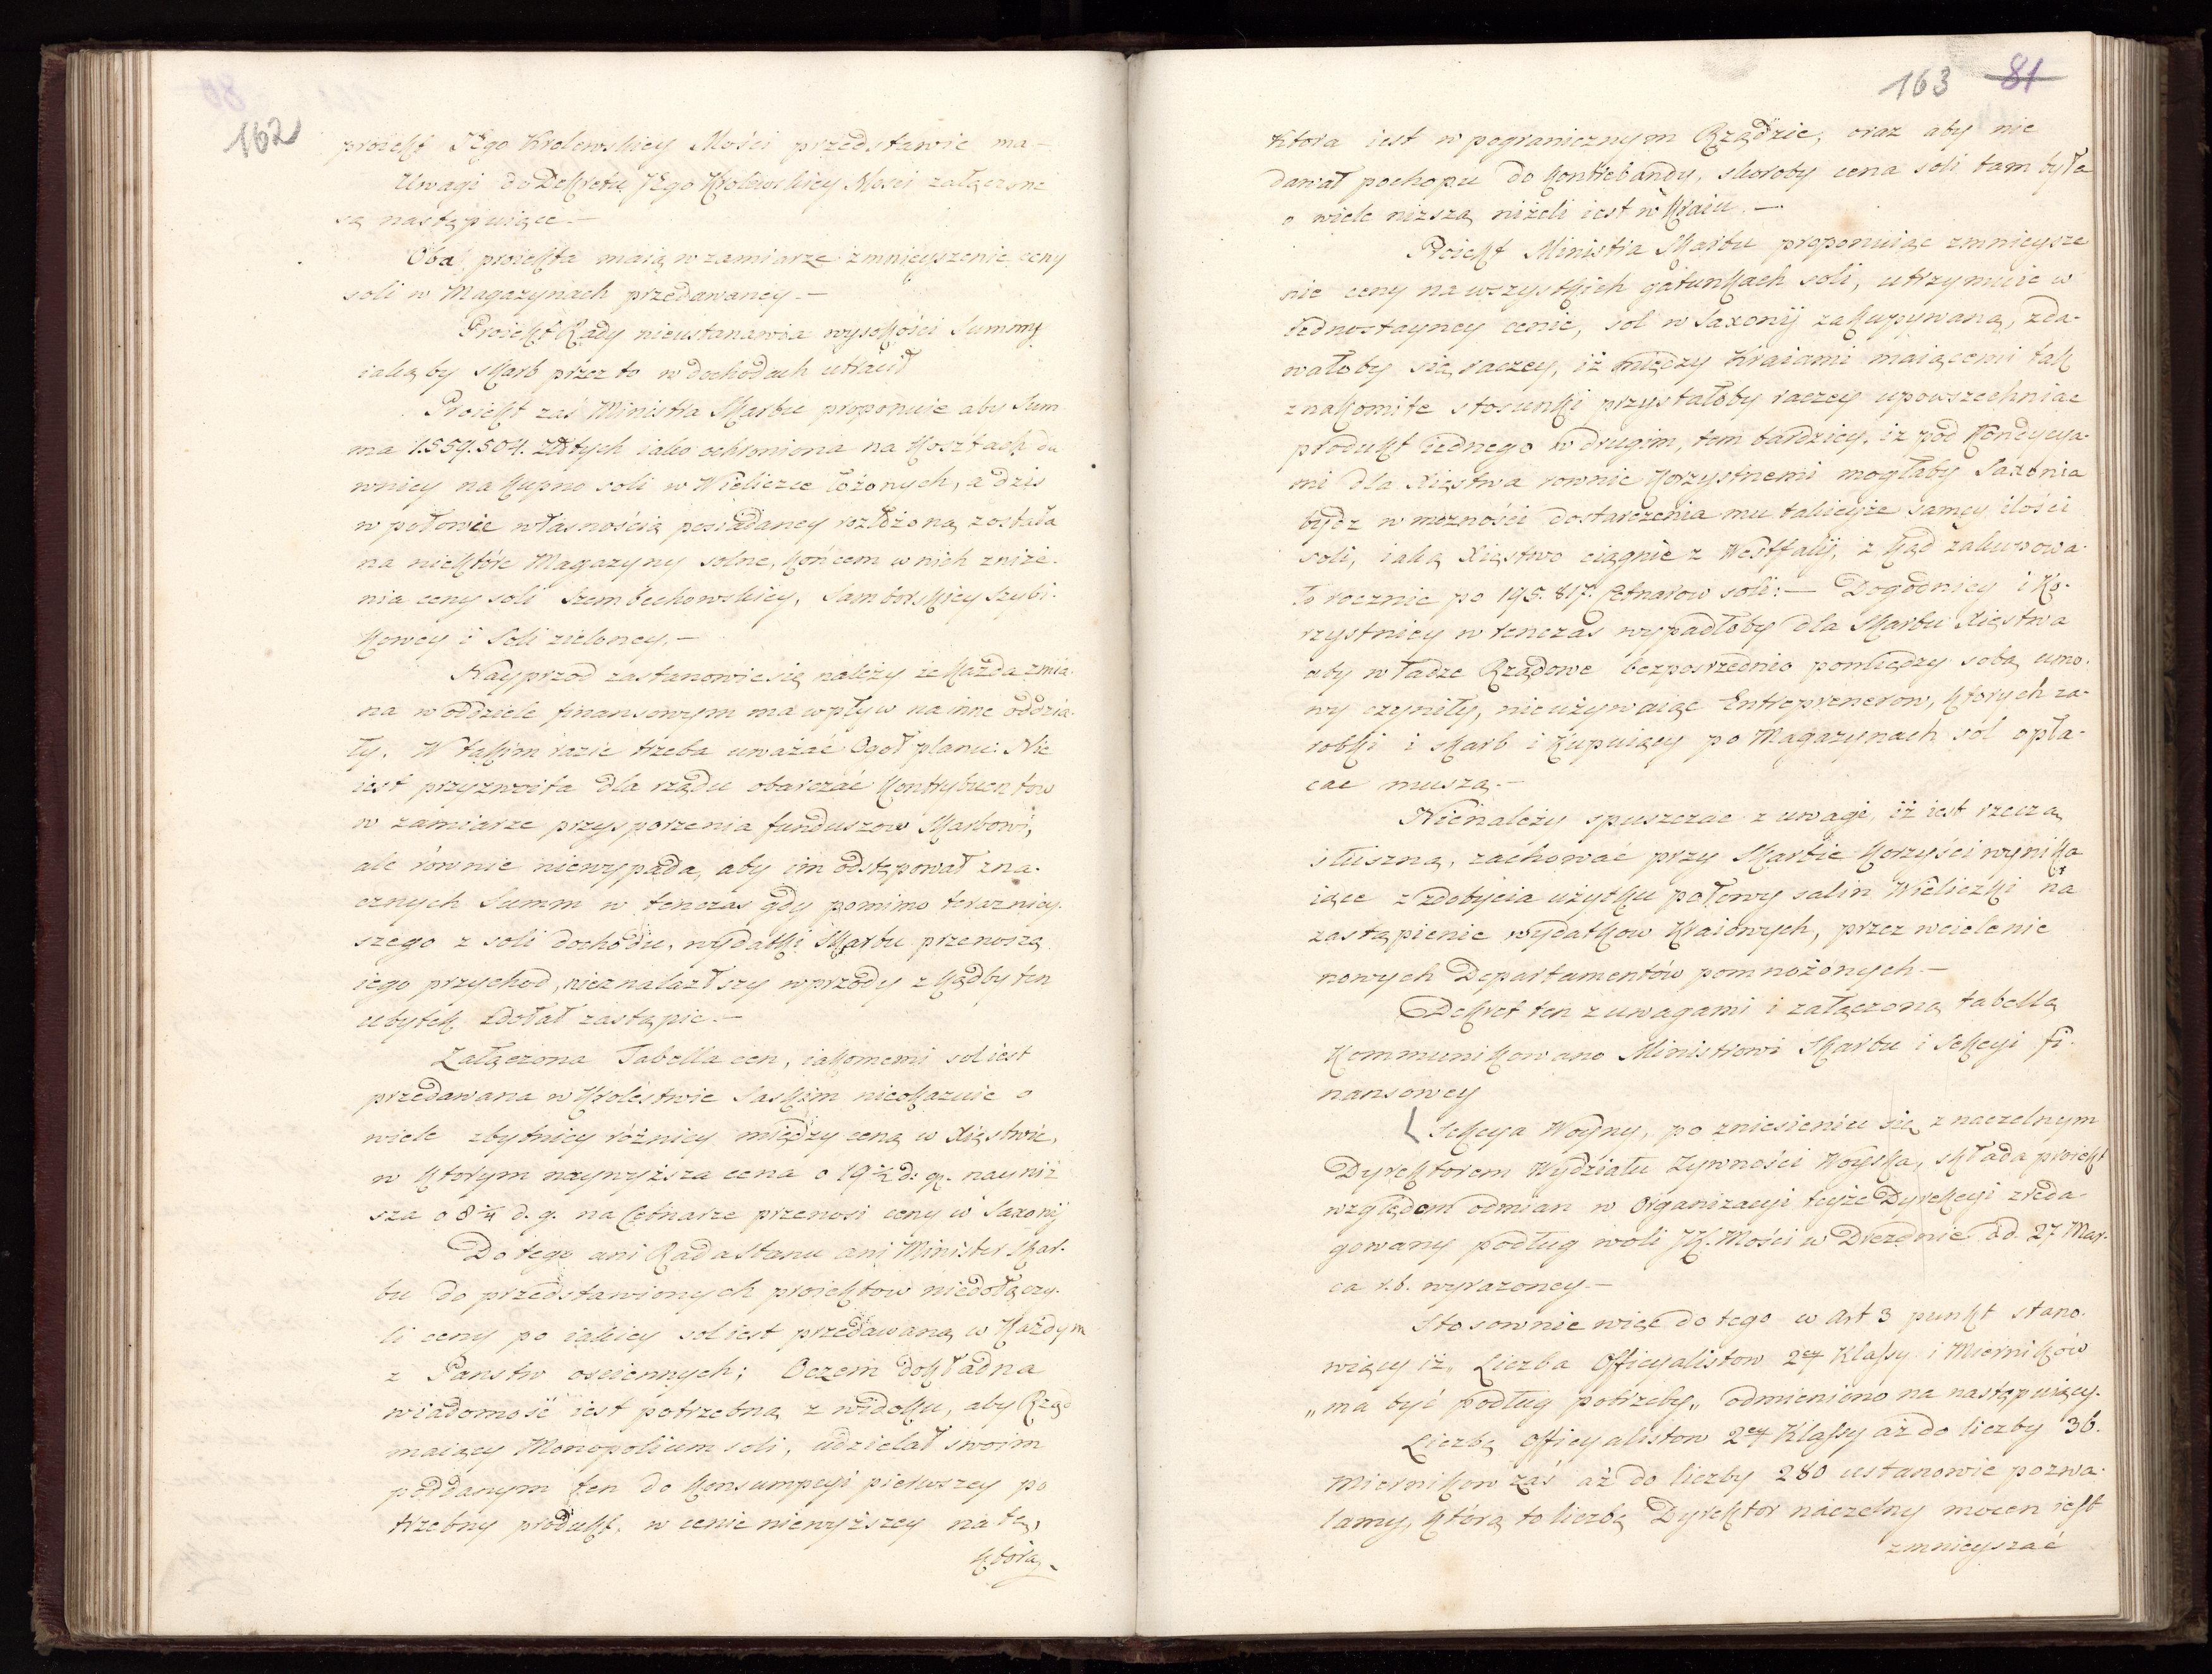 162
proiekt JEgo Krolewskiey Mości przedstawić ma –
Uwagi do Dekretu JEgo Krolewskiey Mości załączone
są następuiące –
Oba proiekta maią w zamiarze zmnieyszenie ceny
soli w Magazynach przedawaney –
Proiekt Rady nieustanawia wysokości Summy
iakąby Skarb przez to w dochodach utracił
Proiekt zaś Ministra Skarbu proponuie aby Sum
ma 1.559.504. Złłtych iako ochroniona na kosztach da
wniey na kupno soli w Wieliczce łożonych, a dziś
w połowie własnością posiadaney rozłożoną została
na niektóre Magazyny solne, końcem w nich zniże.
nia ceny soli Szembekowskiey, Samborskiey Szybi.
kowey i Soli zieloney. –
Nayprzod zastanowić się należy że każda zmia.
na w oddziele finansowym ma wpływ na inne oddzia.
ły. W takim razie trzeba uważać Ogoł planu: Nie
iest przyzwoita dla rządu obarczać kontrybuentow
w zamiarze przysporzenia funduszow Skarbowi,
ale rownie niewypada, aby im odstępował zna.
cznych Summ w tenczas gdy pomimo terazniey.
szego z soli dochodu, wydatki Skarbu przenoszą
iego przychod, nieznalazłszy wprzody zkądby ten
ubytek zdołał zastąpić. –
Załączona Tabella cen, iakowemi sol iest
przedawana w Krolestwie Saskim nieokazuie o
wiele zbytniey różnicy między ceną w Xięstwie,
w ktorym naywyższa cena o 19 ½ d: g. nayniż
sza o 8 ¼ d. g. na Cetnarze przenosi ceny w Saxonij
Do tego ani Rada Stanu ani Minister Skar.
bu do przedstawionych proiektow niedołączy.
li ceny po iakiey sol iest przedawaną w każdym
z Panstw osciennych; Oczem dokładna
wiadomość iest potrzebną z widoku, aby Rząd
maiący Monopolium soli, udzielał swoim
poddanym ten do konsumpcyi pierwszey po
trzebny produkt, w cenie niewyższey na tę,
ktora,
163 81
Ktora iest w pogranicznym Rządzie, oraz aby nie
dawał pochopu do kontrebandy, skoroby cena soli tam była
o wiele niższą niżeli iest w Kraiu. –
Proiekt Ministra Skarbu proponuiąc zmnieysze
nie ceny na wszystkich gatunkach soli, utrzymuie w
Jednostayney cenie, sol w Saxonij zakupywaną, zda-
wałoby się raczey, iż między Kraiami maiącemi tak
znakomite stosunki przystałoby raczey upowszechniać
produkt iednego w drugim, tem bardziey, iż pod Kondycya-
mi dla Xięstwa rownie korzystnemi mogłaby Saxonia
bydz w możności dostarczenia mu takieyże samey ilości
soli, iaką Xięstwo ciągnie z Westfalij, zkąd zakupowa.
ło rocznie po 195.817. Cetnarow soli: – Dogodniey i Ko-
rzystniey w tenczas wypadłoby dla Skarbu Xięstwa
aby władze Rządowe bezposrzednio pomiędzy sobą umo.
wy czyniły, nieużywaiąc Entreprenerow, których za-
robki i skarb i Kupuiący po Magazynach sol opła-
cac muszą. –
Nienależy spuszczac z uwagi, iż iest rzeczą
słuszną, zachować przy Skarbie korzyści wynika
iące z zdobycia użytku połowy salin Wieliczki na
zastąpienie wydatkow Kraiowych, przez wcielenie
nowych Departamentów pomnożonych –
Dekret ten z uwagami i załączoną tabellą
Kommunikowano Ministrowi Skarbu i Sekcyi fi.
nansowey
Sekcya Woyny, po zniesieniu się z naczelnym
Dyrektorem Wydziału Zywności Woyska, składa proiekt
względem odmian w Organizacyi teyże Dyrekcyi zreda-
gowany podług woli JK. Mości w Dreznie dd. 27 Mar.
ca r.b. wyrażoney –
Stosownie więc do tego w Art 3 punkt stano.
wiący iż „ Liczba Officyalistow 2ey Klassy i Mierników
„ma być podług potrzeby„ odmieniono na następuiący.
Liczbę Officyalistow 2ey Klassy aż do liczby 36.
Miernikow zaś aż do liczby 280 ustanowic pozwa.
lamy, którą to liczbę Dyrektor naczelny mocen iest
zmnieyszać